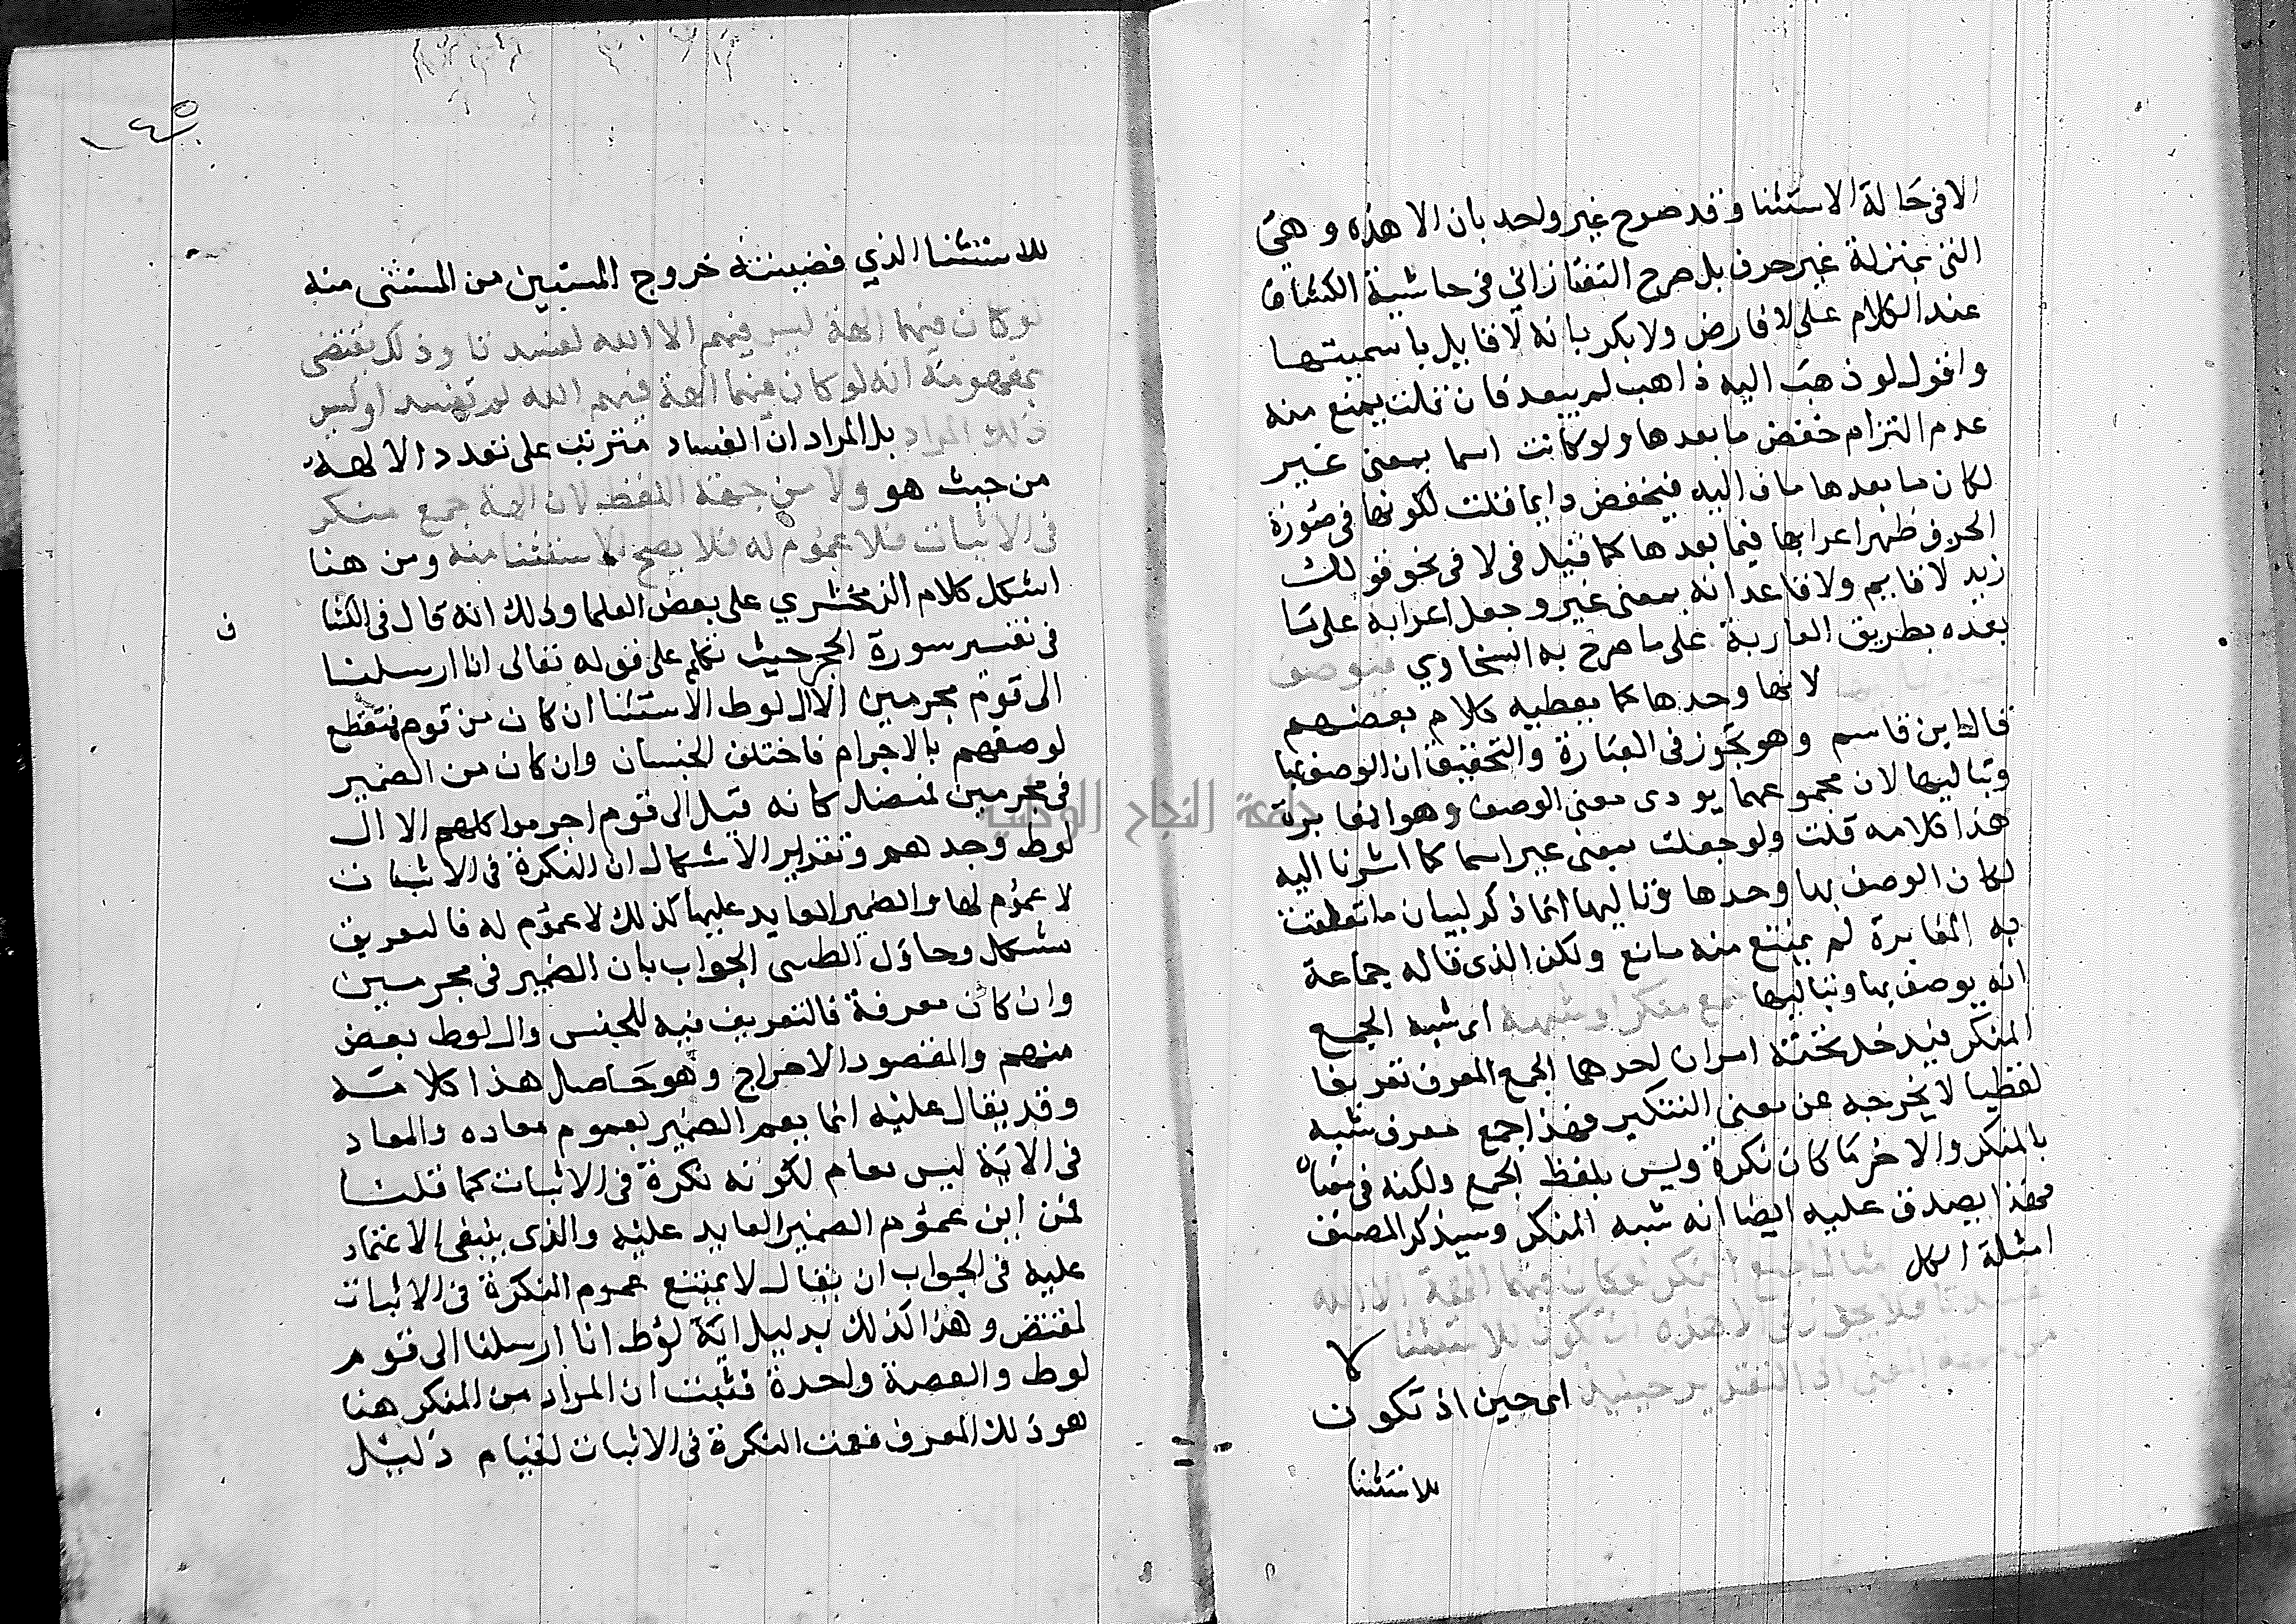 الا فى حالة الاستثنا وقد صرح غير واحد بان الا هذه وهى
التى بمنزلة غير حرف بل صرح التفتازاني فى حاشية الكشاف
عند الكلام على لا فارض ولا بكر بانه لا قايل باسميتها
واقول لو ذهب اليه ذاهب لم يبعد فان قلت يمنع منه
عدم التزام خفض ما بعدها ولو كانت اسما بمعنى غير
لكان ما بعدها مضاف اليه فيخفض دايما قلت لكونها فى صورة
الحرف ظهر اعرابها فيما بعدها كما قيل فى لا فى نحو قولك
زيد لا قايم ولا قاعد انه بمعنى غير وجعل اعرابه على ما
بعده بطريق العارية على ما صرح به السخاوي فيوصف
لا بها وحدها كما يعطيه كلام بعضهم
قال ابن قاسم وهو تجوز فى العبارة والتحقيق ان الوصف بها
وبتاليها لان مجموعهما يودى معنى الوصف وهو المغايرة
هذا كلامه قلت ولو جعلت بمعنى غير اسما كما اشرنا اليه
لكان الوصف بها وحدها وتاليها انما ذكر لبيان ما تعلقت
به المغايرة لم يمنع منه مانع ولكن الذى قاله جماعة
انه يوصف بها وبتاليها جمع منكر او شبهه اى شبه الجمع
المنكر فيدخل تحته امران احدهما الجمع المعرف تعريفا
لفظيا لا يخرجه عن معنى التنكير فهذا جمع معرف شبه
بالمنكر والاخر ما كان نكرة وليس بلفظ الجمع ولكنه فى معناه
فهذا يصدق عليه ايضا انه شبه المنكر وسيذكر المصنف
امثلة الكل مثال الجمع المنكر لو كان فيهما الهة الا الله
لفسدتا فلا يجوز فى الا هذه ان تكون للاستثنا
من جهة المعنى اذ التقدير حينيذ اى حين اذ تكون
للاستثنا
للاستثنا الذي قضيته خروج المستثنى من المستثنى منه
لو كان فيهما الهة ليس فيهم الا الله لفسدتا وذلك يقتضى
بمفهومه انه لو كان فيهما الهة فيهم الله لم تفسدا وليس
ذلك المراد بل المراد ان الفساد مترتب على تعدد الالهة
من حيث هو ولا من جهة اللفظ لان الهة جمع منكر
فى الاثبات فلا عموم له فلا يصح الاستثنا منه ومن هنا
اشكل كلام الزمخشري على بعض العلما وذلك انه قال فى الكشا
ف
فى تفسير سورة الحجر حيث تكلم على قوله تعالى انا ارسلنا
الى قوم مجرمين الا ال لوط الاستثنا ان كان من قوم فمنقطع
لوصفهم بالاجرام فاختلف الجنسان وان كان من الضمير
فى مجرمين فمتصل كانه قيل الى قوم اجرموا كلهم الا ال
لوط وحدهم وتقرير الاشكال ان النكرة فى الاثبات
لا عموم لها والضمير العايد عليها كذلك لا عموم له فالتعريف
مشكل وحاول الطيبى الجواب بان الضمير فى مجرمين
وان كان معرفة فالتعريف فيه للجنس وال لوط بعض
منهم والمقصود الاخراج وهو حاصل هذا كلامه
وقد يقال عليه انما يعم الضمير بعموم معاده والمعاد
فى الاية ليس بعام لكونه نكرة فى الاثبات كما قلنا
فمن اين عموم الضمير العايد عليه والذى ينبغى الاعتماد
عليه فى الجواب ان يقال لا يمتنع عموم النكرة فى الاثبات
لمقتض وهذا كذلك بدليل اية لوط انا ارسلنا الى قوم
لوط والقصة واحدة فثبت ان المراد من المنكر هنا
هو ذلك المعرف فعمت النكرة فى الاثبات لقيام دليل
جامعة النجاح الوطنية